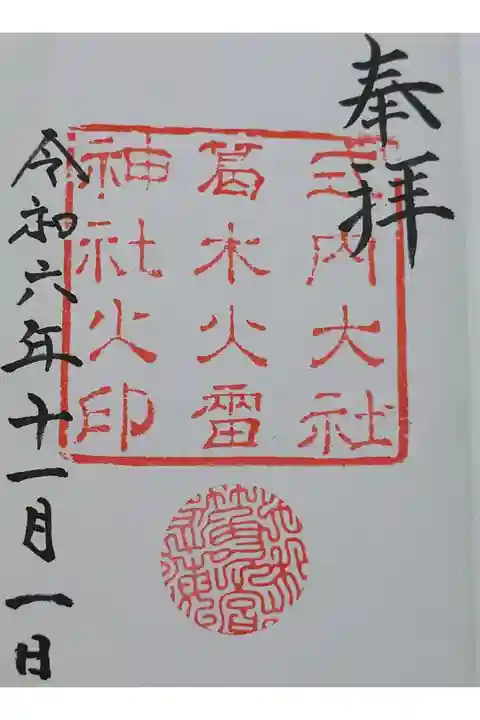 奉拝
式内大社
葛木火雷
神社之印
令和六年十一月一日